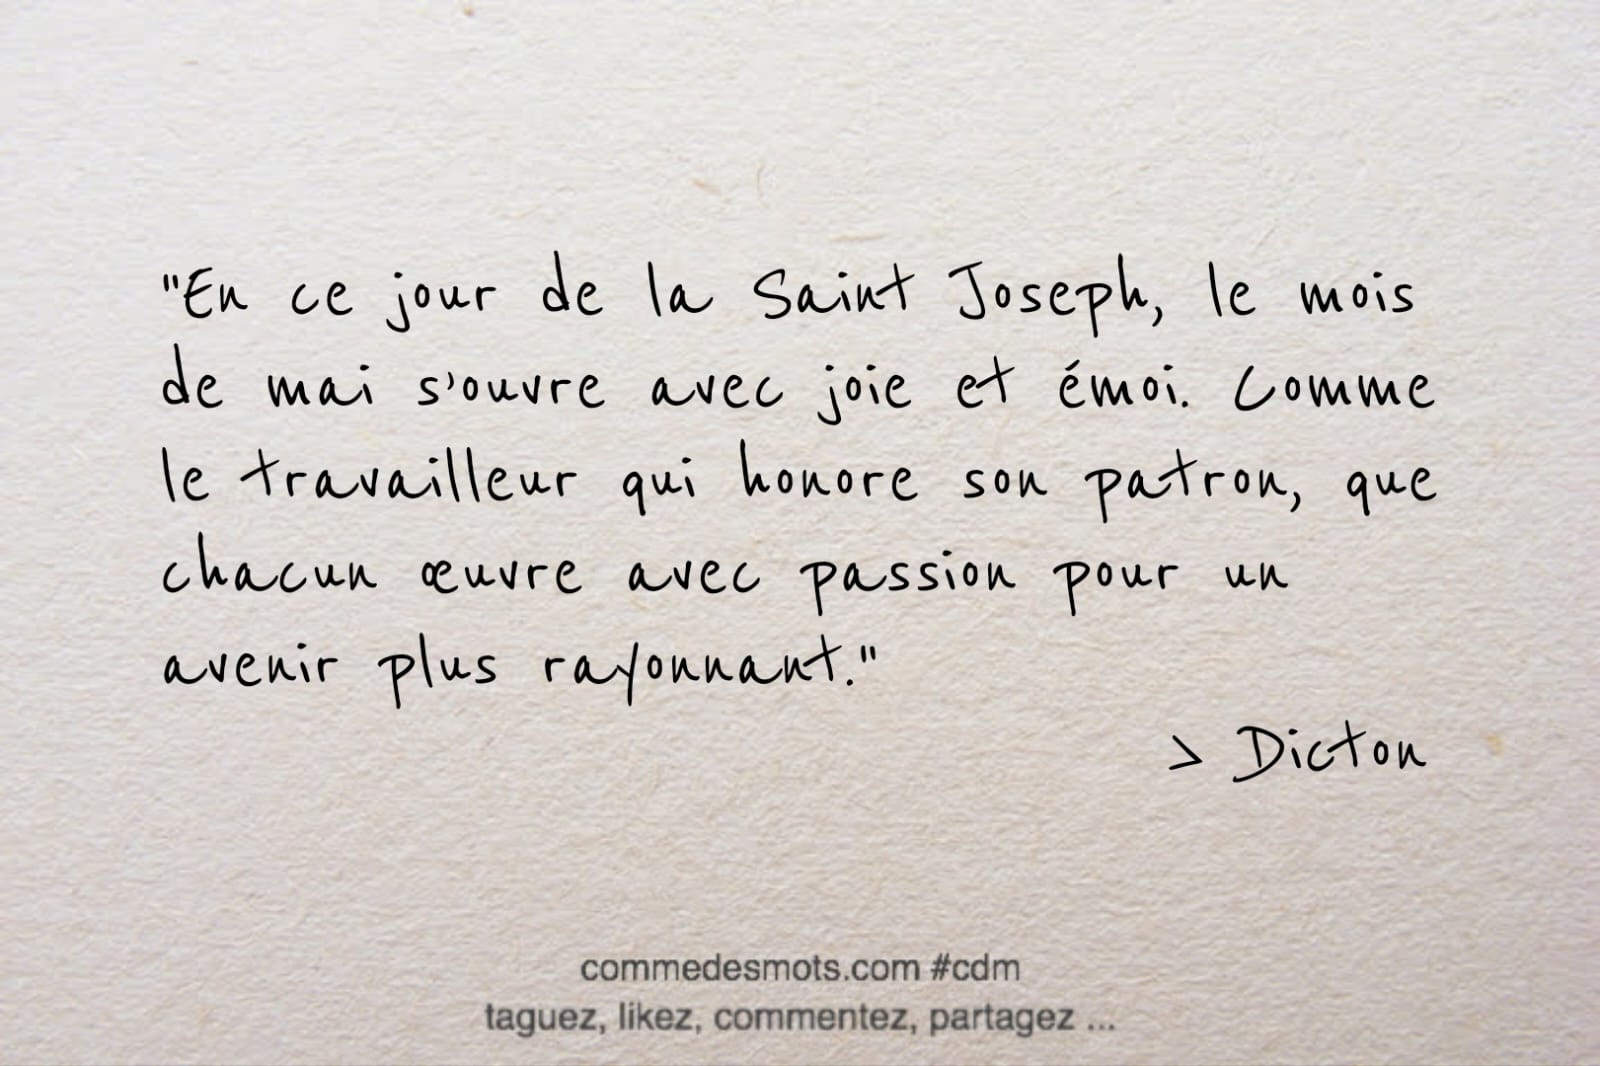 "En ce jour de la Saint Joseph, le mois
de mai s'ouvre avec joie et émoi. Comme
le travailleur qui honore son patron, que
chacun œuvre avec passion pour un
avenir plus rayonnant."
> Dicton
commedesmots.com #cdm
taguez, likez, commentez, partagez ...